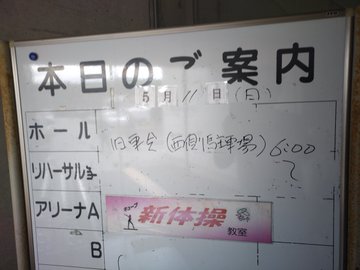 本日のご案内
5月11日(月)
ホール
リハーサル室
6:00
〜
アリーナA
新体操
教室
B